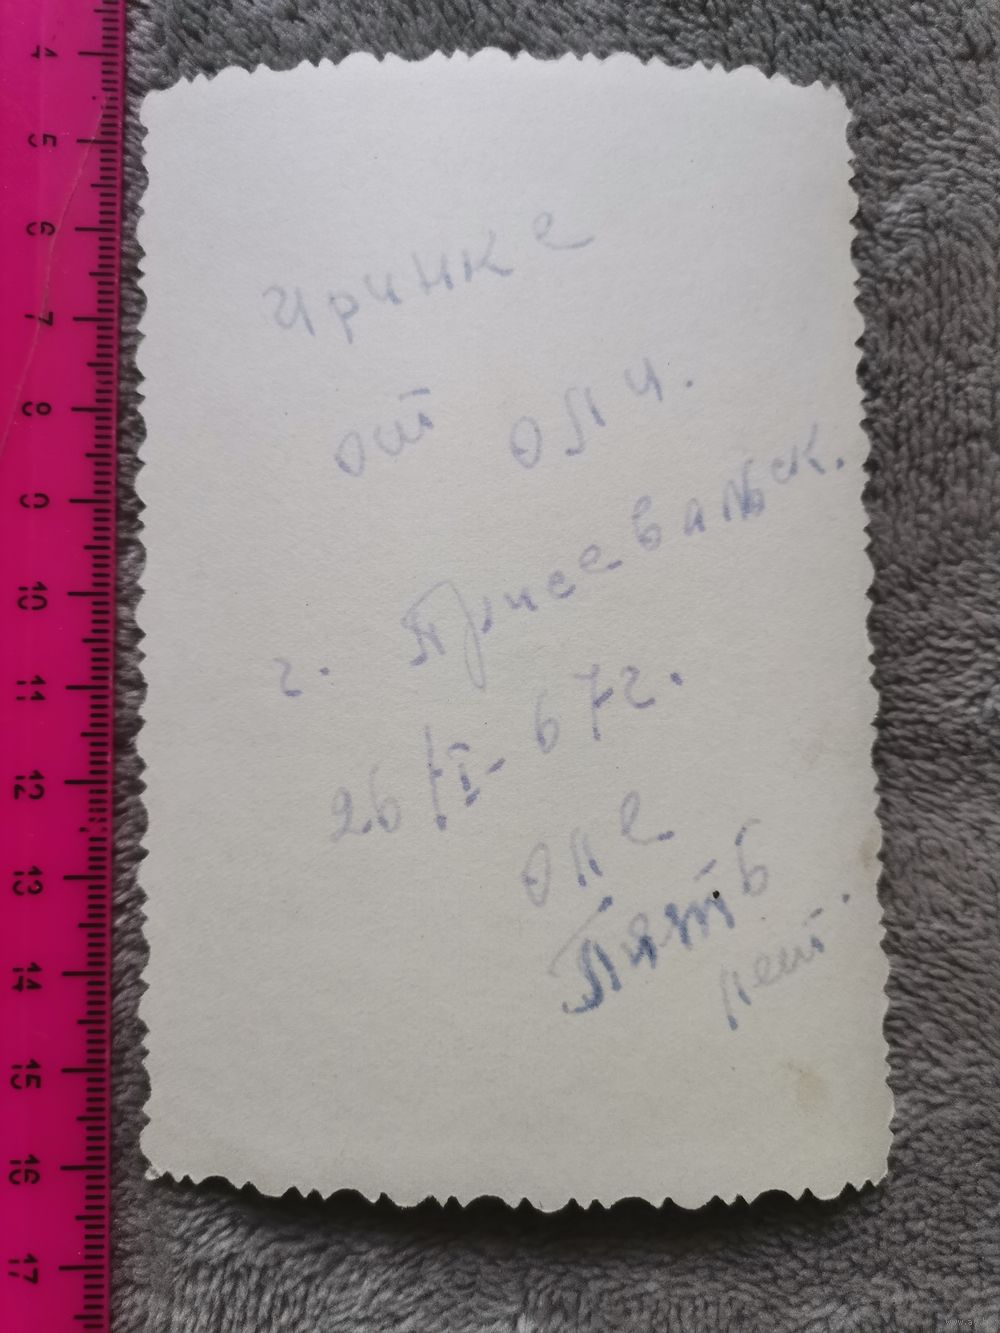 4
5
6
7
8
9
10
11
12
13
14
15
16
17
иринке
от оли.
г. Присевальск.
26/I-67г.
оле
Пять
лет.